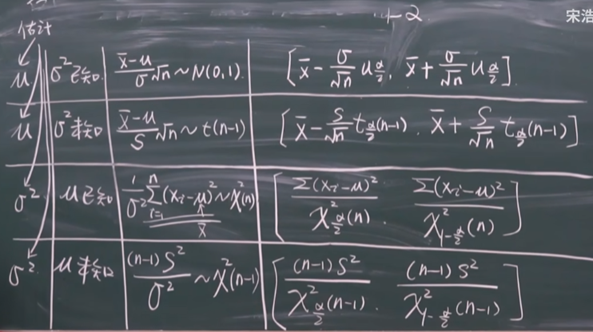 宋浩
1-2
估计
μ σ²已知 (x̄-μ)/σ √n ~ N(0,1) [x̄ - σ/√n u_{α/2}, x̄ + σ/√n u_{α/2}]
μ σ²未知 (x̄-μ)/S √n ~ t(n-1) [x̄ - S/√n t_{α/2}(n-1), x̄ + S/√n t_{α/2}(n-1)]
σ² μ已知 1/σ² Σ_{i=1}^{n} (x_i-μ)² ~ χ²(n) [Σ(x_i-μ)²/χ²_{α/2}(n), Σ(x_i-μ)²/χ²_{1-α/2}(n)]
x̄
σ² μ未知 (n-1)S²/σ² ~ χ²(n-1) [(n-1)S²/χ²_{α/2}(n-1), (n-1)S²/χ²_{1-α/2}(n-1)]